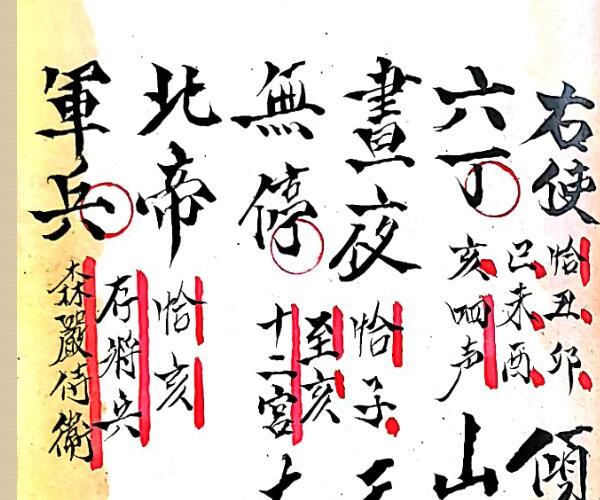 右使
恰丑卯
巳未酉
傾
六丁
亥四声
山
晝夜
恰子
無停
至亥
十二宮
北帝
恰亥
存將兵
軍兵
森嚴侍衛